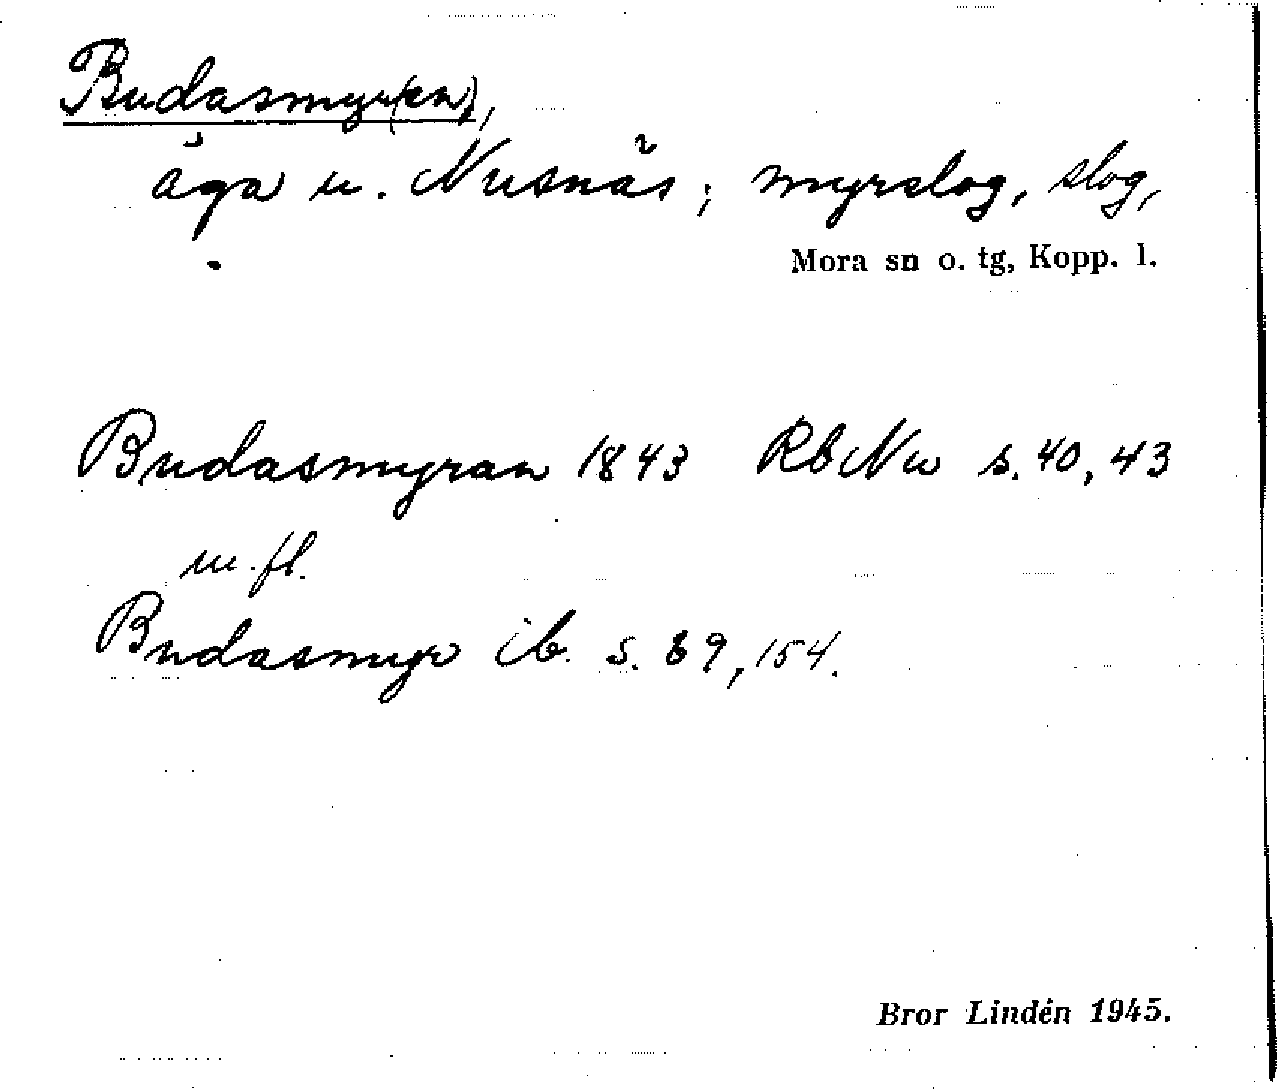 Budasmyr(en),
äga u. Nusnäs; myrslog, slog,
Mora sn o. tg, Kopp. l.
Budasmyran 1843 RbNu s. 40, 43
m.fl.
Budasmyr ib. s. 89, 154.
Bror Lindén 1945.